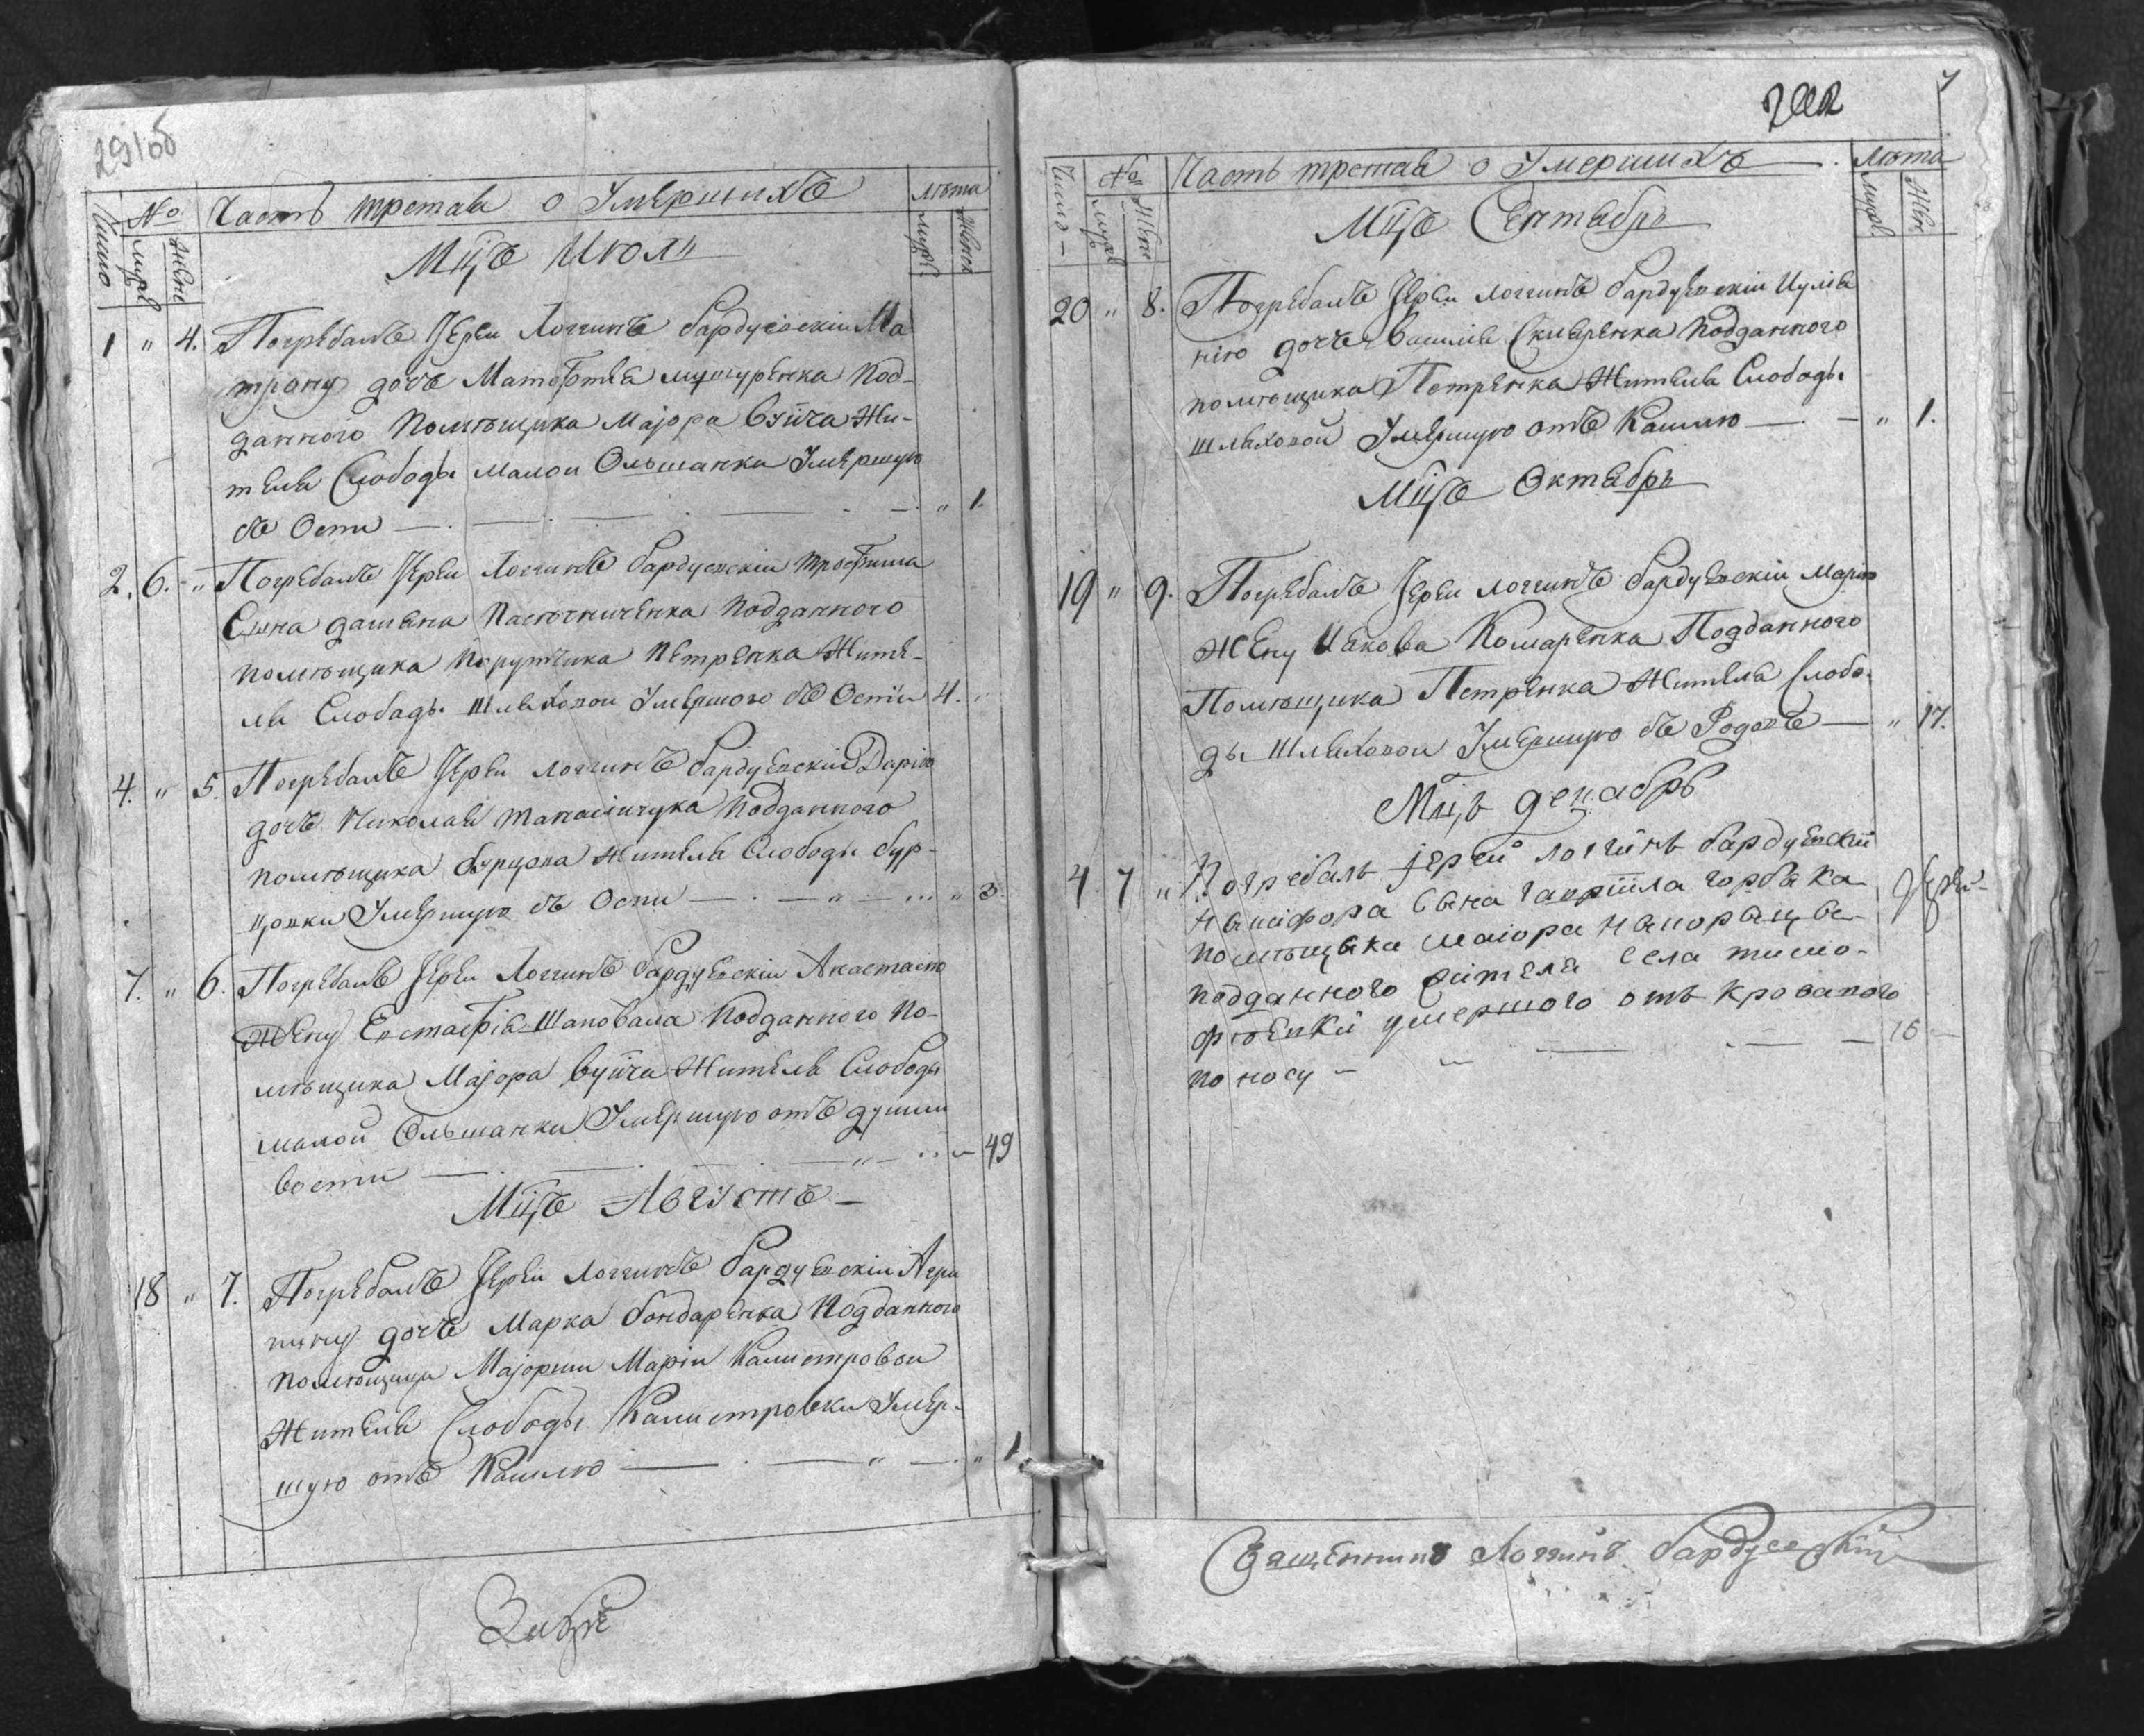 291об
Число № Часть третая о Умершихъ Лѣта
муж женс муж женск
Мцъ Июль
1 " 4. Погребалъ Іереи Логгинъ бардуевскіи Ма
трону дочь Матофтея мушуренка Под-
данного Помѣщика Маіора Вуича Жи-
теля Слободы Малои Ольшанки Умершую
въ Оспи " 1.
2. 6. " Погребалъ Іереи Логгинъ бардуевскіи трофима
Сына дамяна Пасючниченка Подданного
помѣщика Порутчика Петренка Жите-
ля Слободы Шляховои Умершого въ Оспи 4. "
4. " 5. Погребалъ Іереи логгинъ бардуевскіи Дарію
дочь Николая танасійчука Подданного
помѣщика бурцова Жителя Слободы бур-
цовки Умершую въ Оспи " 3.
7. " 6. Погребалъ Іереи Логгинъ бардуевскіи Анастасію
Жену Евстафія Шаповала Подданного По-
мѣщика Маіора Вуича Жителя Слободы
малои Ольшанки Умершую отъ души
вости 49
Мцъ Августъ
18 " 7. Погребалъ Іереи логгинъ бардуевскіи Агри
пину дочь Марка бондаренка Подданного
помѣщици Маіорши Маріи Калистровои
Жителя Слободы Калистровки Умер-
шую отъ Кашлю " 1
7
Число № Часть третая о Умершихъ Лѣта
муж жен муж жен
Мцъ Сентябрь
20 " 8. Погребалъ Іереи логгинъ бардуевскіи Иулія
нію дочь Василія Скляренка Подданного
помѣщика Петренка Жителя Слободы
шляховой Умершую отъ Кашлю " 1.
Мцъ Октябрь
19 " 9. Погребалъ Іереи логгинъ бардуевскіи Марію
жену Иакова Комаренка Подданного
Помѣщика Петренка Жителя Слобо-
ды Шляховои Умершую въ Родахъ " 17.
Мцъ декабрь
4 7 " Погребалъ іереи логгинъ бардуевскій
никифора сына гавріила горбака
помѣщика маіора
подданного жителя села тимо-
фѣевки умершого отъ кровавого
поносу 15
Священникъ Логгинъ бардуевскій